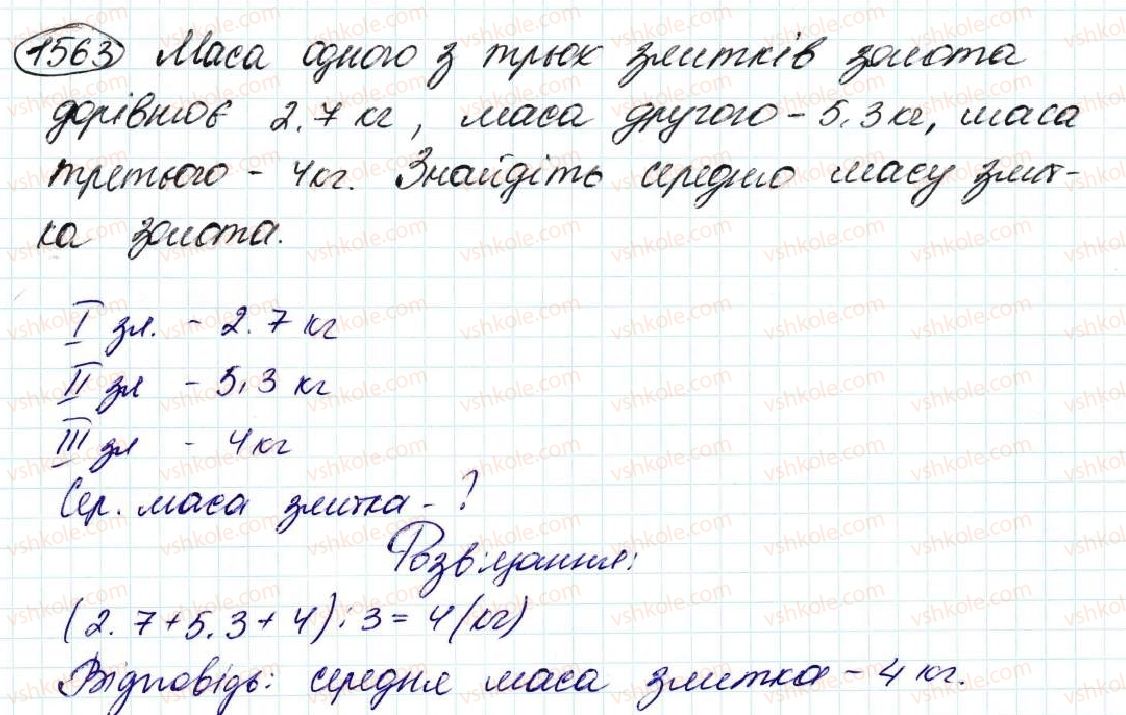 1563 Маса одного з трьох злитків золота
дорівнює 2.7 кг, маса другого - 5.3 кг, маса
третього - 4 кг. Знайдіть середню масу злит-
ка золота.
I зл. - 2.7 кг
II зл - 5.3 кг
III зл - 4 кг
Сер. маса злитка - ?
Розв'язання:
(2.7+5.3+4):3=4(кг)
Відповідь: середня маса злитка - 4 кг.